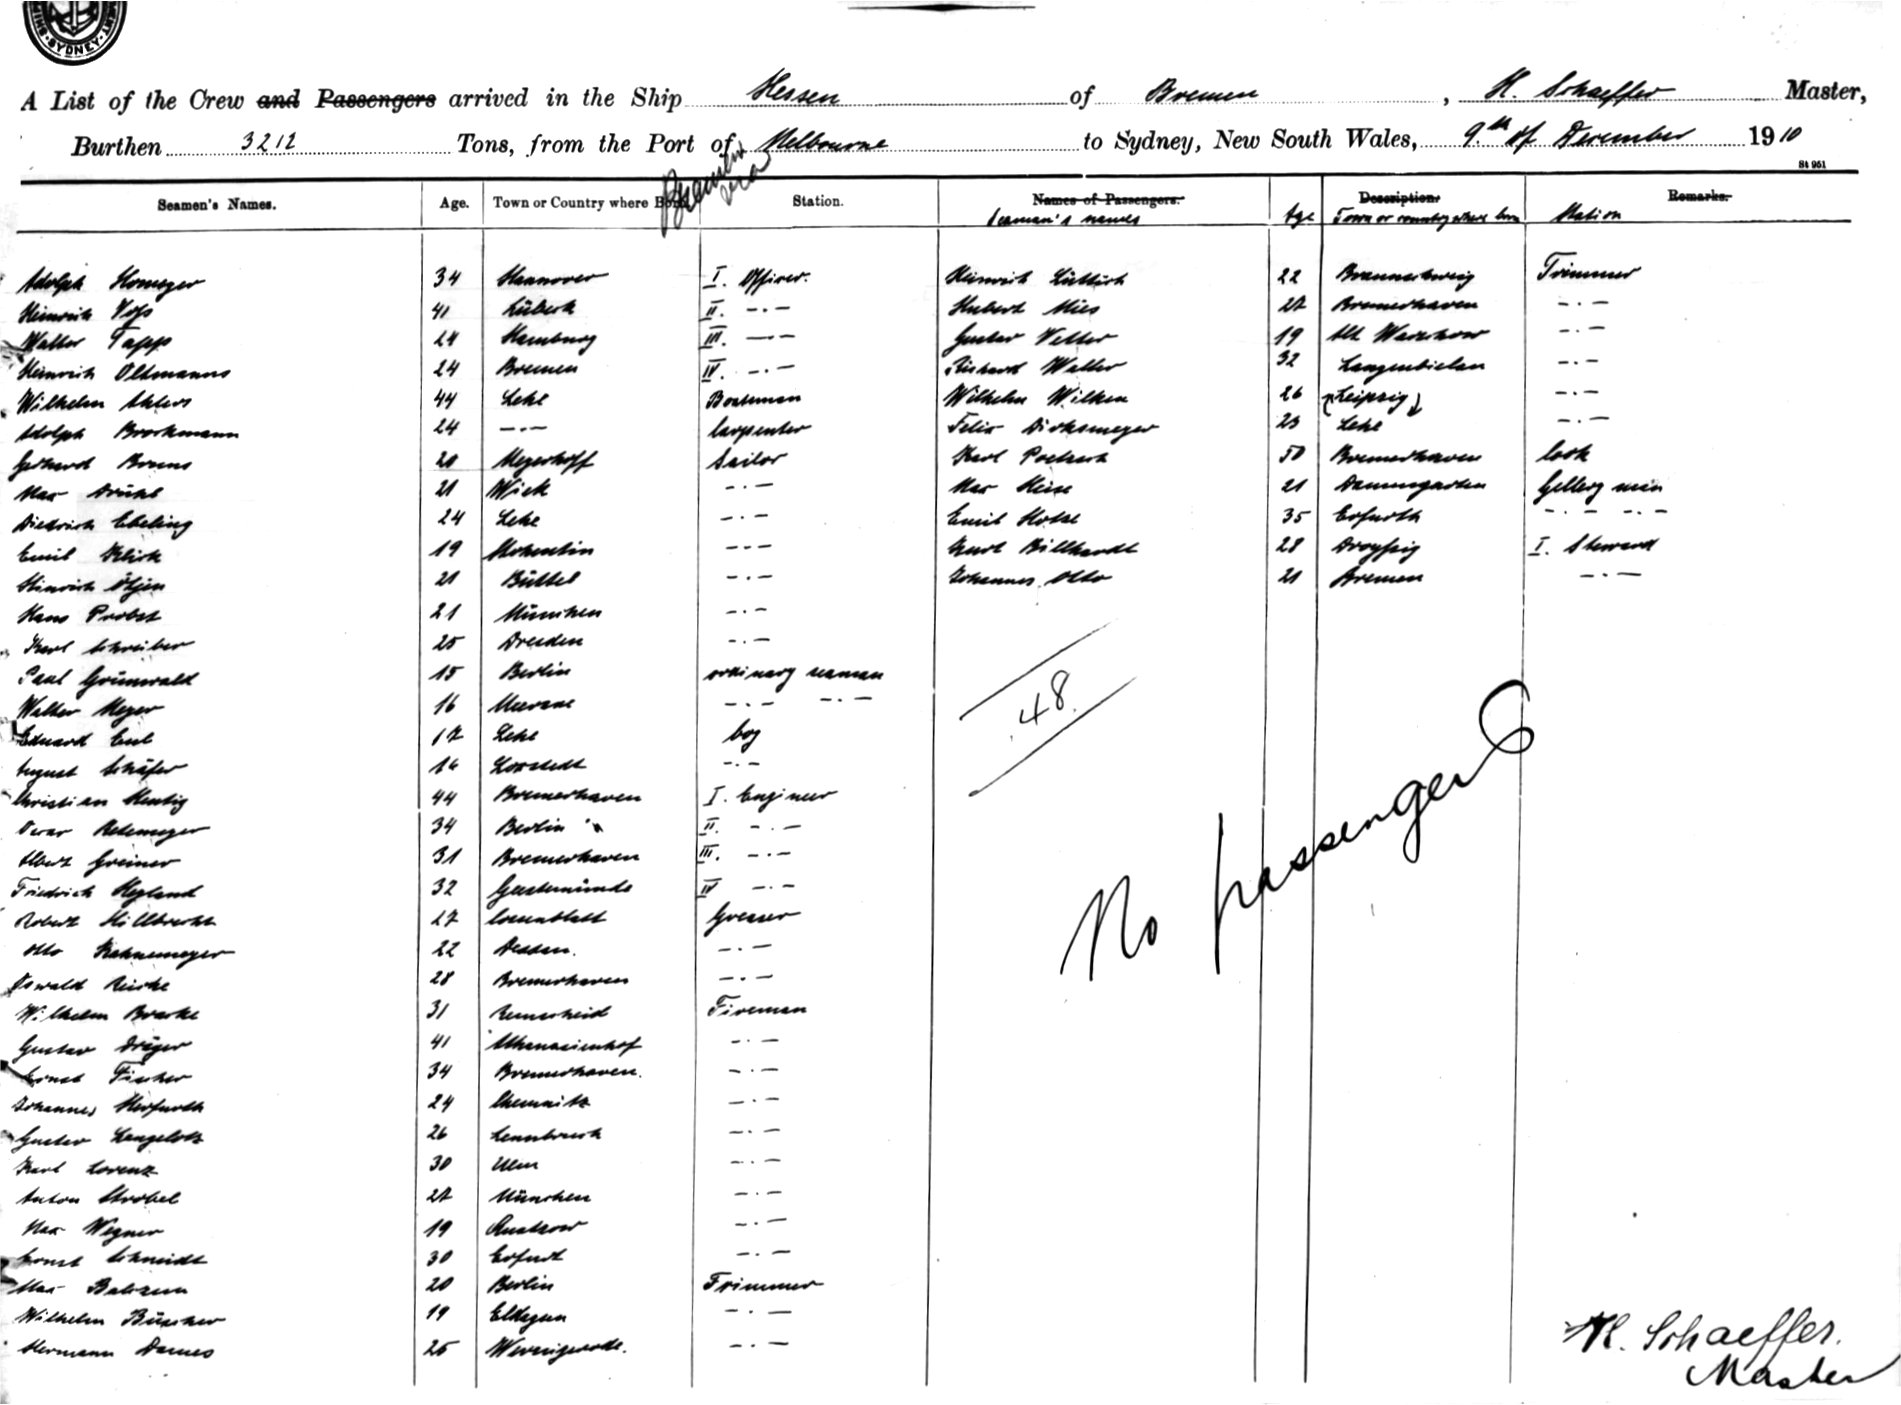 SYDNEY
A List of the Crew and Passengers arrived in the Ship Hessen of Bremen, H. Schaeffer Master,
Burthen 3212 Tons, from the Port of Melbourne to Sydney, New South Wales, 9.th of December 1910
via
St 951
Seamen's Names. Age. Town or Country where Born Station. Names of Passengers. Description. Remarks.
Seaman's names Age Town or country where born Station
Adolph Homeyer 34 Hannover I. Officer. Heinrich Lüttich 22 Braunschweig Trimmer
Heinrich Voss 41 Lübeck II. -.- Hubert Mies 27 Bremerhaven -.-
Walter Tapp 24 Hamburg III. -.- Gustav Vetter 19 Alt -.-
Heinrich Oltmanns 24 Bremen IV. -.- Richard Walter 32 Langenbielau -.-
Wilhelm Ahlers 44 Lehe Boatsman Wilhelm Wilken 26 Leipzig -.-
Adolph Brockmann 24 -.- Carpenter Felix Dirksmeyer 23 Lehe -.-
Gerhard Bruns 20 Meyerhoff Sailor Karl 50 Bremerhaven Cook
Max 21 Wiek -.- Max Heise 21 Gellery man
Diedrich Ebeling 24 Lehe -.- Emil 35 Erfurth -.- -.-
Emil Klick 19 -.- Kurt Billhardt 28 Droyssig I. Steward
Hinrich Ötjen 21 Büttel -.- Johannes Otto 21 Bremen -.-
Hans Probst 21 München -.-
Karl Schreiber 25 Dresden -.-
Paul Grünwald 15 Berlin ordinary seaman
Walter Meyer 16 Meerane -.- -.-
Eduard 17 Lehe boy
August Schäfer 16 Loxstedt -.-
Christian Hentig 44 Bremerhaven I. Engineer
Oscar Redemeyer 34 Berlin II. -.-
Albert Greiner 31 Bremerhaven III. -.-
Friedrich Heyland 32 Geestemünde IV -.-
Robert Hillbrecht 27 Greaser
Otto Hahnemeyer 22 Dessau. -.-
Oswald Reiche 28 Bremerhaven -.-
Wilhelm Bracke 31 Remscheid Fireman
Gustav Dräger 41 Athanasienhof -.-
Ernst Fischer 34 Bremerhaven. -.-
Johannes Herfurth 24 Chemnitz -.-
Gustav Langelotz 26 -.-
Karl Lorenz 30 Ulm -.-
Anton Strobel 27 München -.-
Max Wegner 19 -.-
Ernst Schmidt 30 Erfurt -.-
Max 20 Berlin Trimmer
Wilhelm Büscher 19 Eldagsen -.-
Hermann Dames 25 Wernigerode. -.-
48.
No passengers
H. Schaeffer.
Master